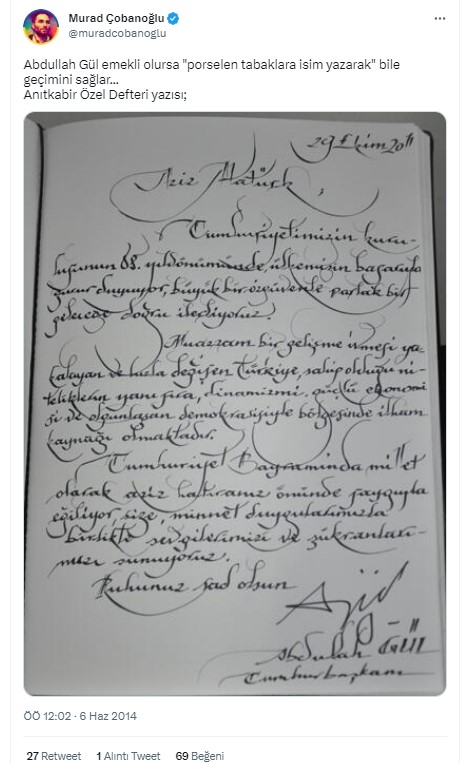 Murad Çobanoğlu
@muradcobanoglu
Abdullah Gül emekli olursa "porselen tabaklara isim yazarak" bile
geçimini sağlar...
Anıtkabir Özel Defteri yazısı;
29 Ekim 2011
Aziz Atatürk,
Cumhuriyetimizin kuru-
luşunun 88. yıldönümünde, ülkemizin başarıyla
gurur duyuyor, büyük bir özgüvenle parlak bir
geleceğe doğru ilerliyoruz.
Muazzam bir gelişme ivmesi ya-
kalayan ve hızla değişen Türkiye, sahip olduğu ni-
teliklerin yanı sıra, dinamizmi, güçlü ekonomi
si ve olgunlaşan demokrasisiyle bölgesinde ilham
kaynağı olmaktadır.
Cumhuriyet Bayramında millet
olarak aziz hatıranız önünde saygıyla
eğiliyor, size, minnet duygularımızla
birlikte sevgilerimizi ve şükranları-
mızı sunuyoruz.
Ruhunuz şad olsun
Abdullah Gül
Cumhurbaşkanı
ÖÖ 12:02 · 6 Haz 2014
27 Retweet 1 Alıntı Tweet 69 Beğeni